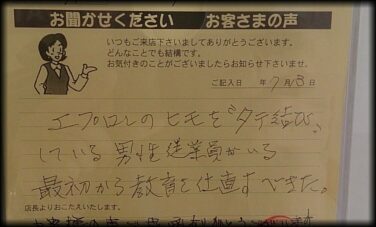 お聞かせください　お客さまの声
いつもご来店下さいましてありがとうございます。
どんなことでも結構です。
お気付きのことがございましたらお知らせ下さいませ。
ご記入日　年 9月13日
エプロンのヒモを“タテ結び„
している男性従業員がいる
最初から教育を仕直すべきた。
店長よりおこたえいたします。